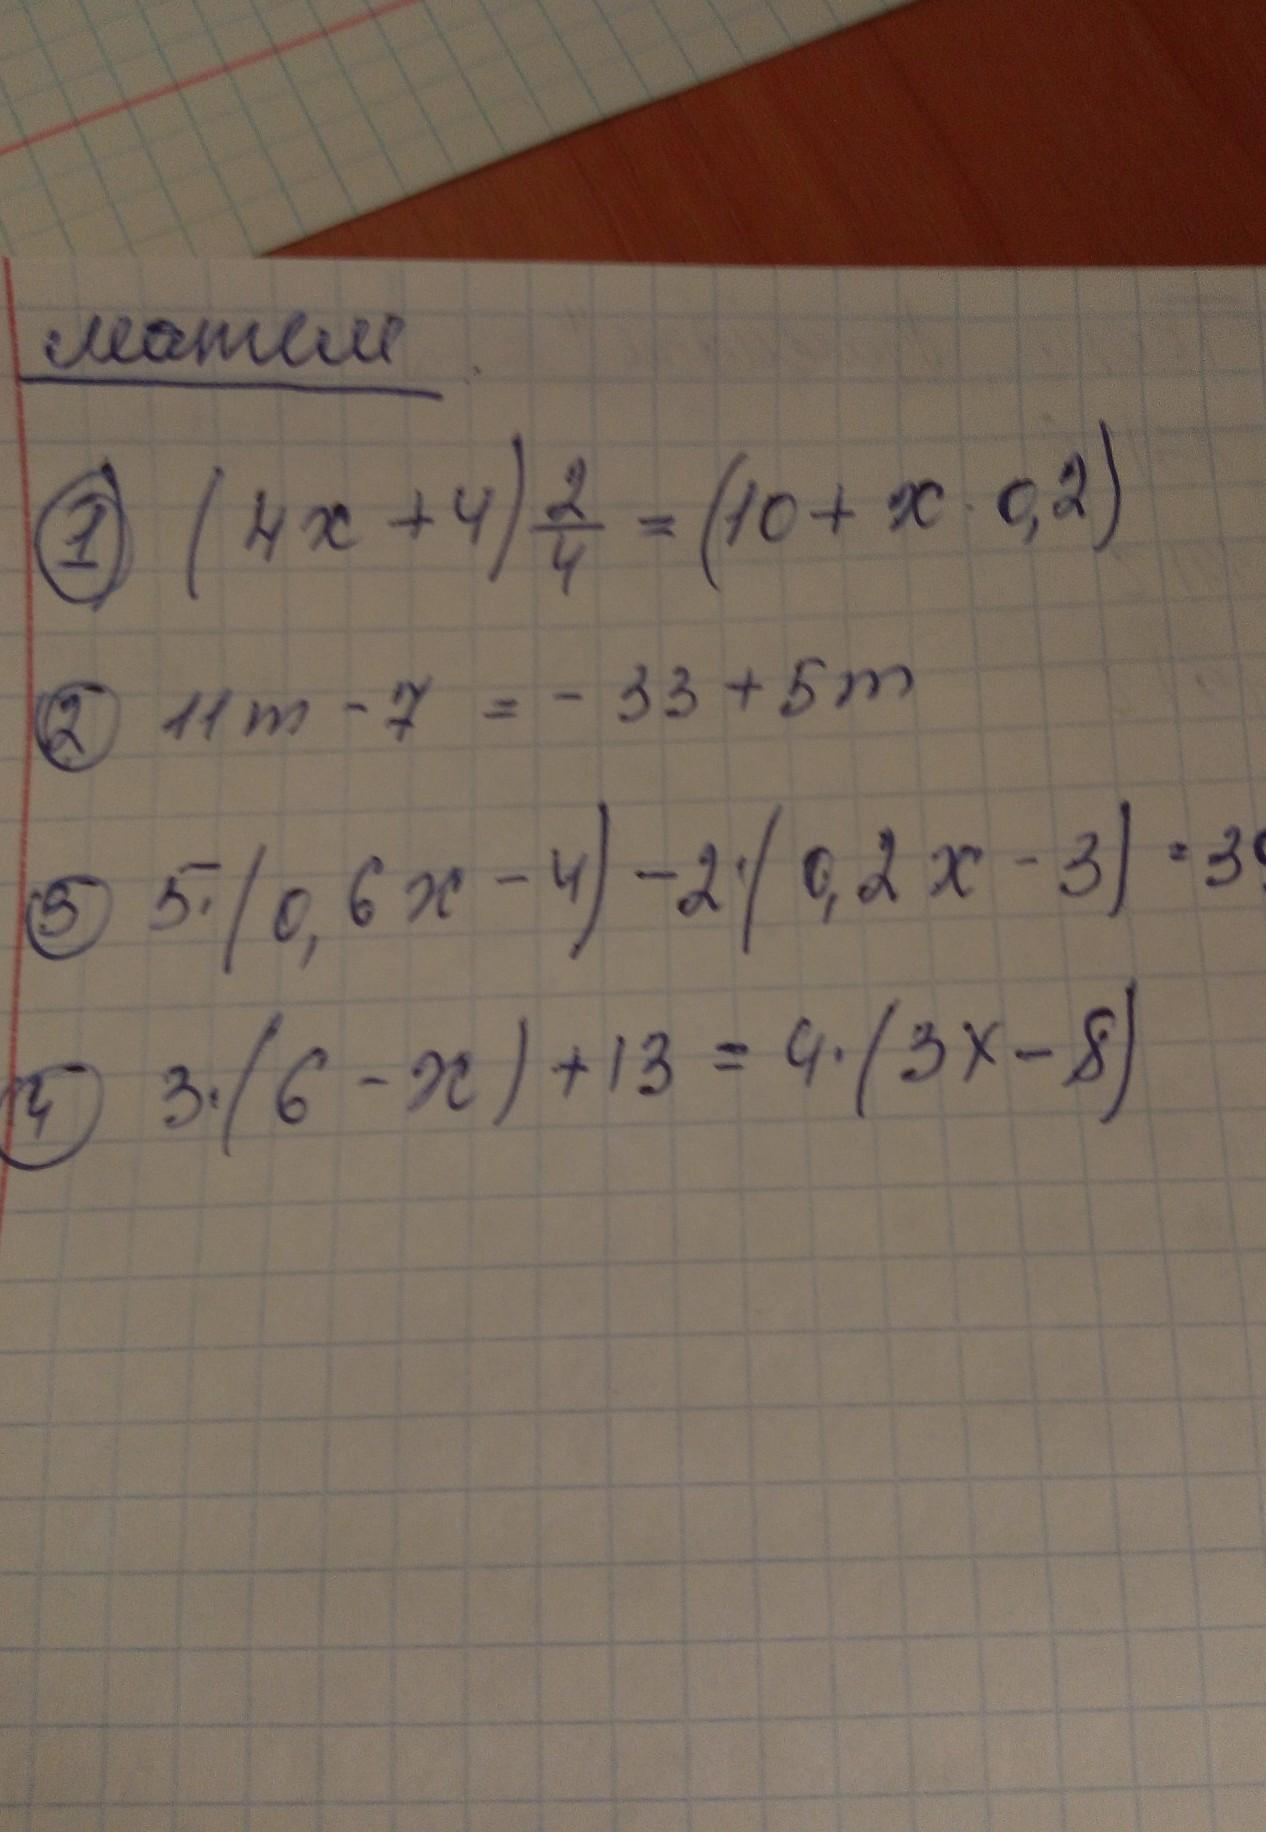 матем
① (4x + 4) 2/4 = (10 + x · 0,2)
② 11m - 7 = - 33 + 5m
③ 5·(0,6x - 4) - 2·(0,2x - 3) = 39
④ 3·(6 - x) + 13 = 4·(3x - 8)